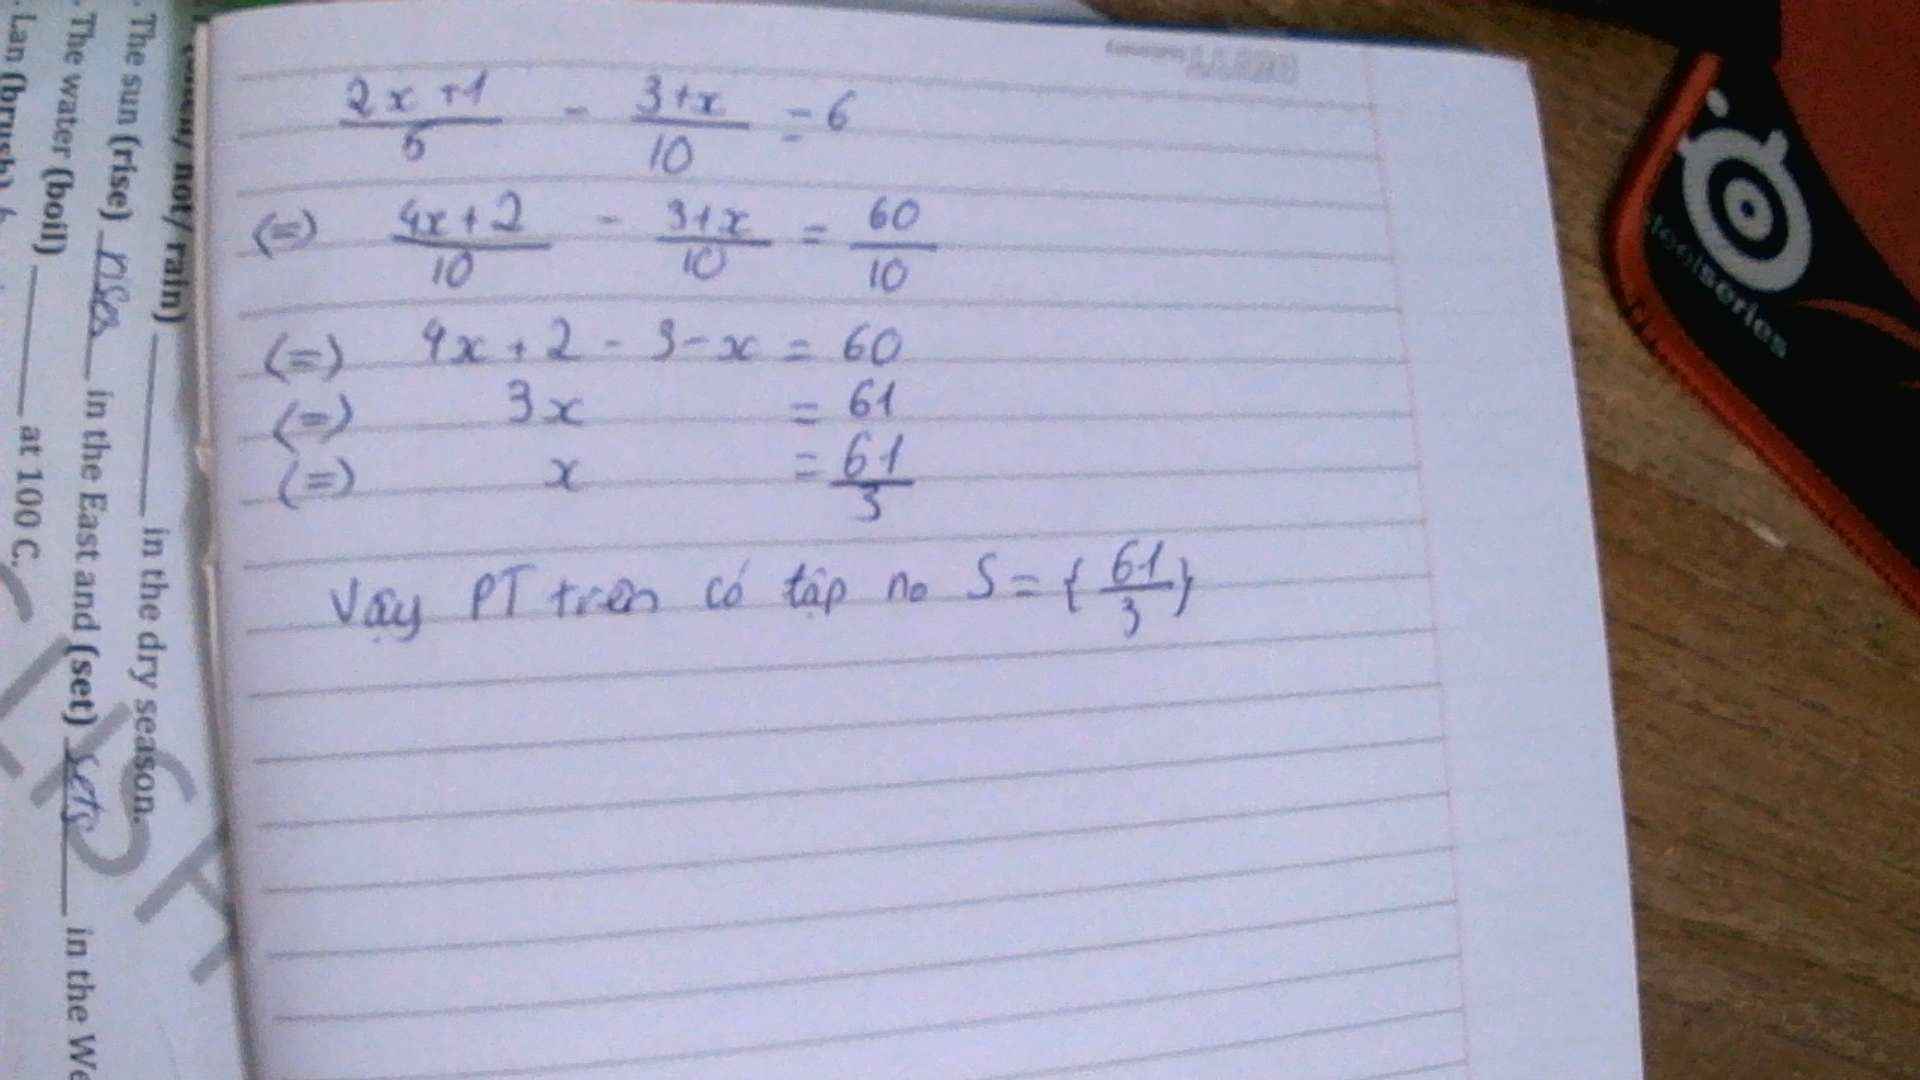 2x+1/5 - 3+x/10 = 6
(=) 4x+2/10 - 3+x/10 = 60/10
(=) 4x + 2 - 3 - x = 60
(=) 3x = 61
(=) x = 61/3
Vậy PT trên có tập no S = { 61/3 }
not/ rain) ______ in the dry season.
. The sun (rise) rises in the East and (set) sets in the We
. The water (boil) ______ at 100 C.
. Lan (brush)
steelseries